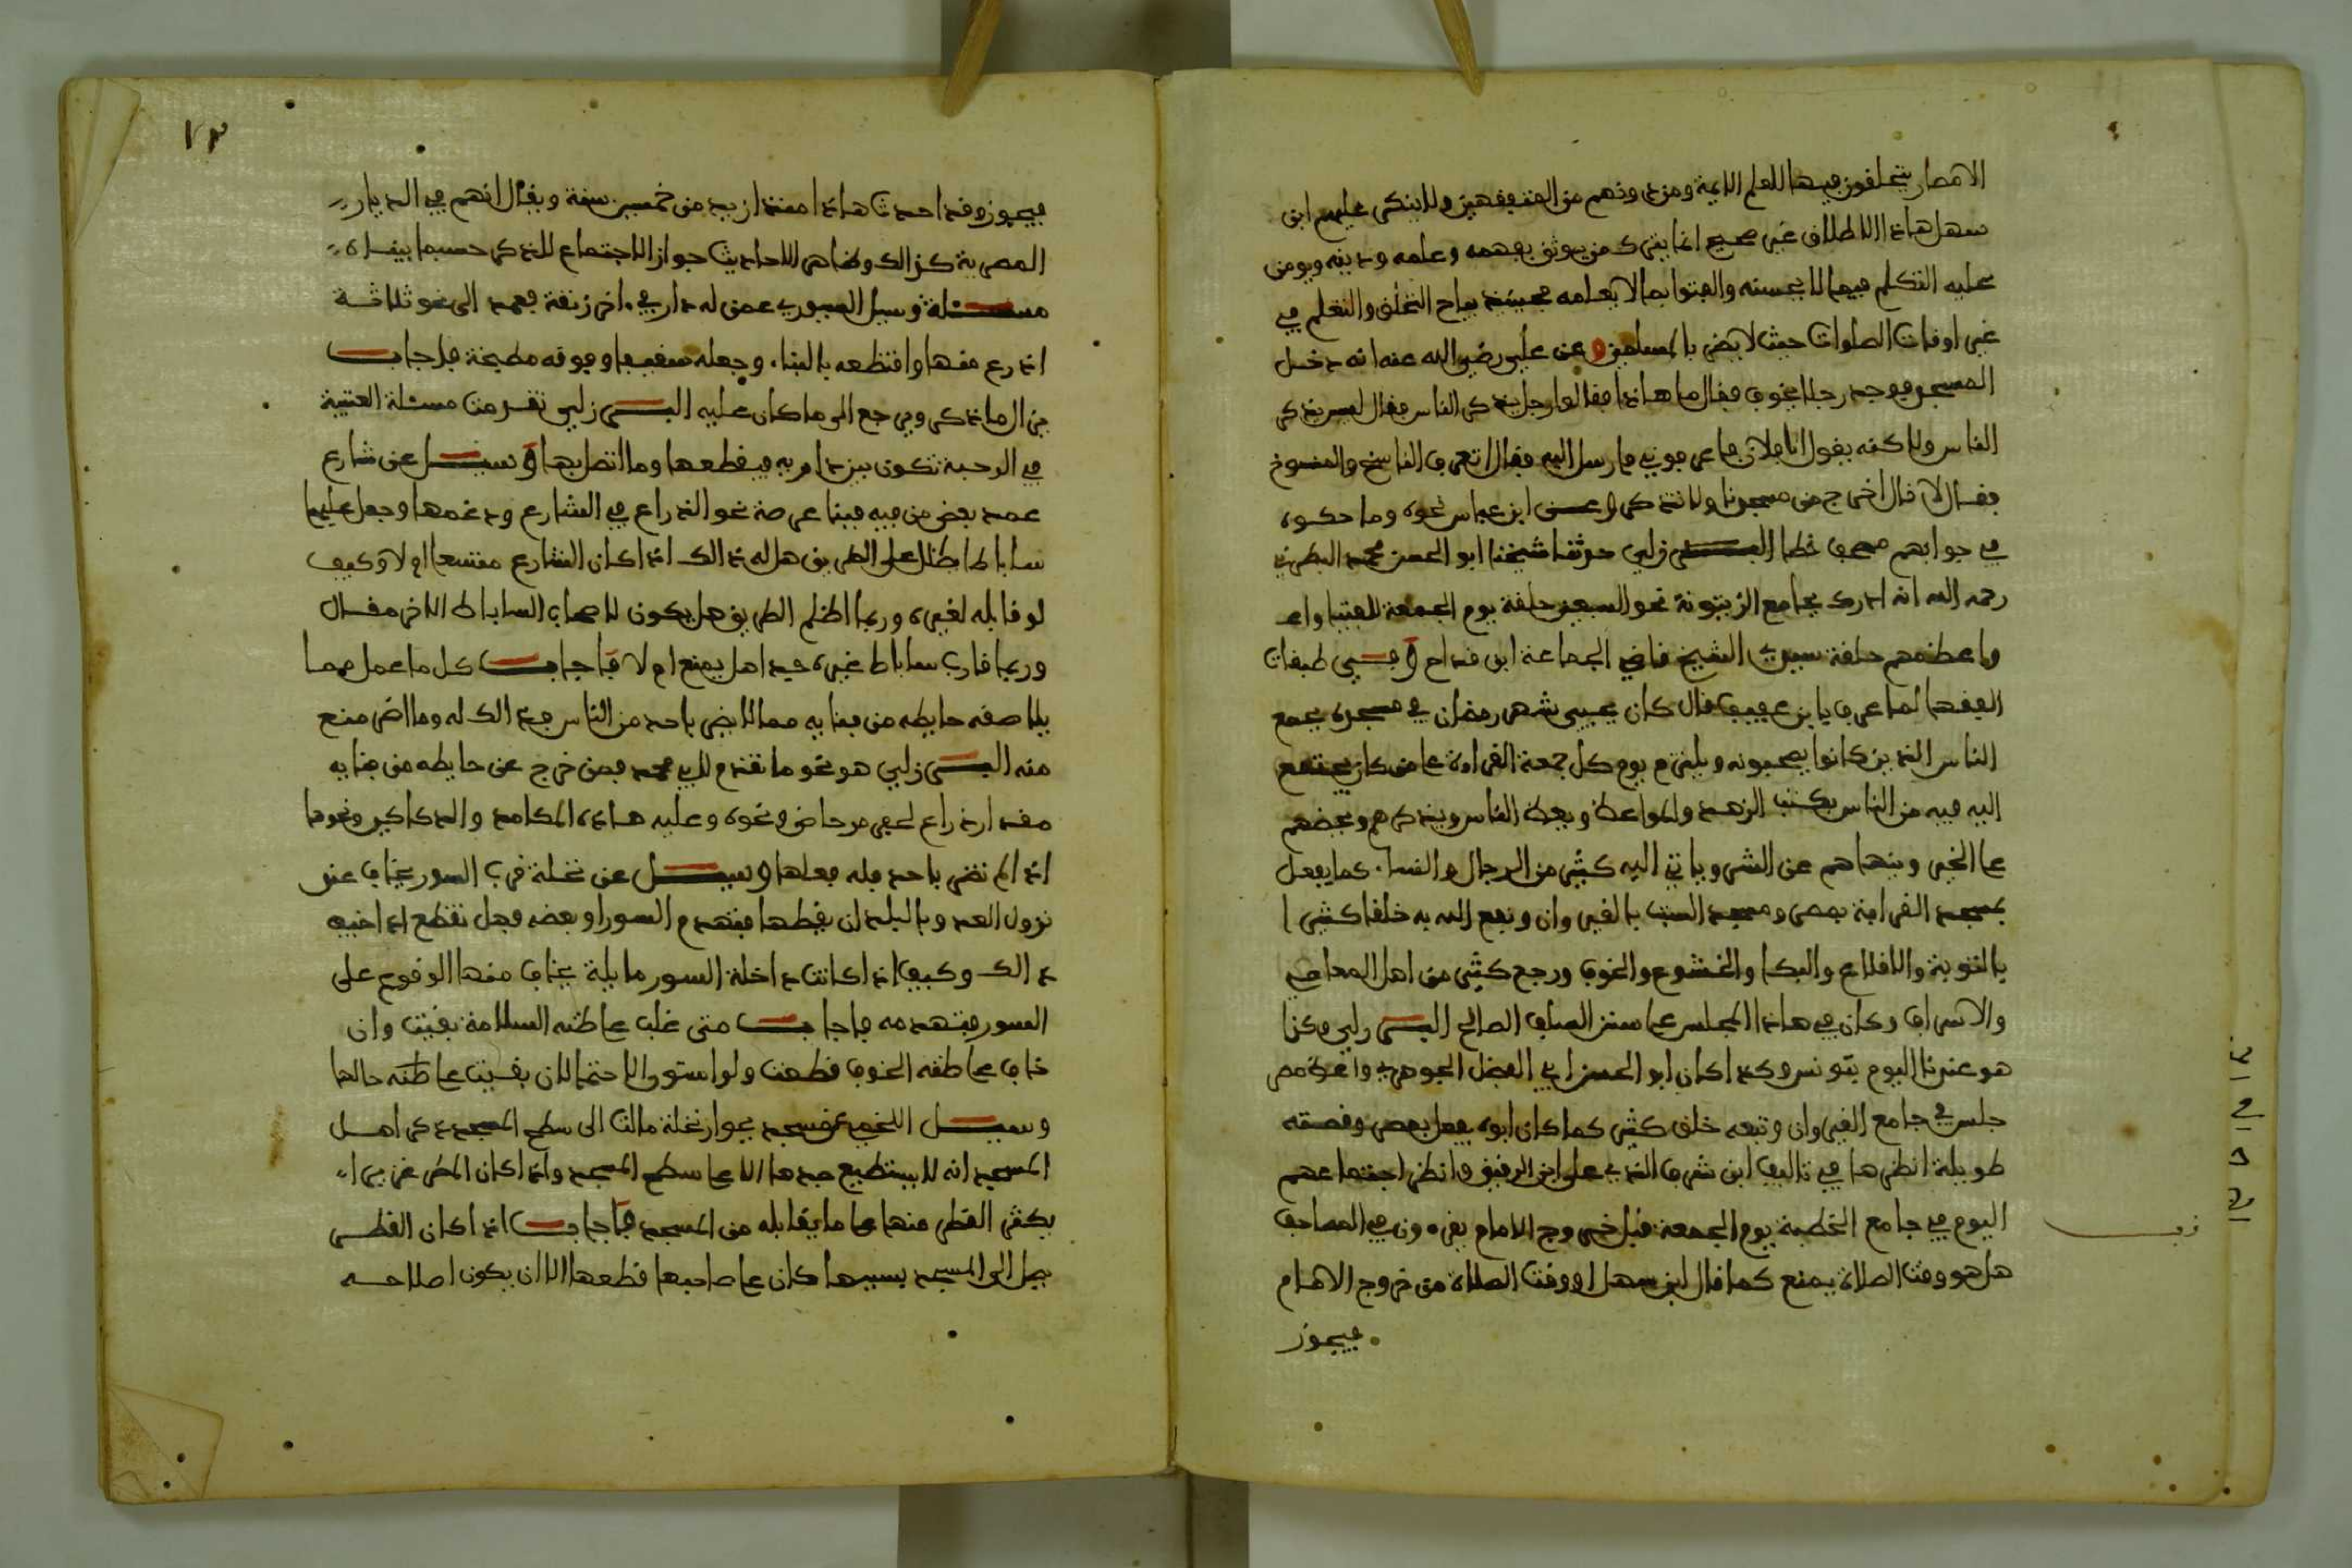 الامصار يتحلقون فيها للعلم الايمة ومن دونهم من المتفقهين ولا ينكر عليهم ابن
سهل هاذا الاطلاق غير صحيح انما يترك من يوثق بفهمه وعلمه ودينه ويومن
عليه التكلم فيما لا يحسنه والفتوا بما لا يعلمه فحينئذ يباح التحلق والتعلم في
غير اوقات الصلوات حيث لا يضر بالمصلين وعن علي رضي الله عنه انه دخل
المسجد فوجد رجلا يخوف فقال ما هاذا فقالوا رجل يذكر الناس فقال ليس يذكر
الناس ولاكنه يقول انا فلان فاعرفوني فارسل اليه فقال اتعرف الناسخ والمنسوخ
فقال لا قال اخرج من مسجدنا ولا تذكر وعن ابن عباس نحوه وما حكوه
في جوابهم صحف خطا البرزلي حدثنا شيخنا ابو الحسن محمد البطرني
رحمه الله انه ادرك بجامع الزيتونة نحو السبعين حلقة يوم الجمعة للفتيا واعـ
واعظمهم حلقة سيدي الشيخ قاضي الجماعة ابن قداح وفي طبقات
الفقها لما عرف بابن عفيف قال كان يحيي شهر رمضان في مسجده يجمع
الناس الذين كانوا يصحبونه ويلتزم يوم كل جمعة القراءة على من كان يجتمع
اليه فيه من الناس بكتب الزهد والمواعظ ويعظ الناس ويذكرهم ويحضهم
على الخير وينهاهم عن الشر وياتي اليه كثير من الرجال والنساء كما يفعل
بمسجد القرافة بمصر ومسجد السبت بالقيروان ونفع الله به خلقا كثيرا
بالتوبة والاقلاع والبكا والخشوع والخوف ورجع كثير من اهل المعاصي
والاسراف وكان في هاذا المجلس على سنن السلف الصالح البرزلي وكذا
هو عندنا اليوم بتونس وكذا كان ابو الحسن ابن الفضل الجوهري واعظ مصر
جلس في جامع القيروان وتبعه خلق كثير كما كان ابوه يفعل بمصر وقصته
طويلة انظرها في تاليف ابن شرف الذي على ابن الرقيق وانظر اجتماعهم
اليوم في جامع الخطبة يوم الجمعة قبل خروج الامام يقرءون في المصاحف
هل هو وقت الصلاة يمنع كما قال ابن سهل او وقت الصلاة من خروج الامام
فيجوز
١٣
فيجوز وقد احدث هاذا منذ ازيد من خمسين سنة ويقال انهم في الديار
المصرية كذالك وظاهر الاحاديث جواز الاجتماع للذكر حسبما بيناه
مسئلة وسيل السيوري عمن له دار في اخر زنقة فعمد الى نحو ثلاثة
اذرع منها واقتطعه بالبناء وجعله سقيفا وفوقه مطبخة فاجاب
يزال ما ذكر ويرجع الى ما كان عليه البرزلي تقدمت مسئلة العتبية
في الرحبة تكون بين داريه فيقطعها وما اتصل بها وسيل عن شارع
عمد بعض من فيه فبنا عرصة نحو الذراع في الشارع ودعمها وجعل عليها
ساباطا يظلل على الطريق هل له ذالك اذا كان الشارع متسعا ام لا وكيف
لو قابله لغيره وربما اظلم الطريق هل يكون لاصحاب الساباط الاخر مقال
وربما قارب ساباط غيره جيدا هل يمنع ام لا فاجاب كل ما عمل مما
يلاصقه حايطه من بنايه مما لا يضر باحد من الناس فذالك له وما اضر منع
منه البرزلي هو نحو ما تقدم لابي محمد فيمن خرج عن حايطه من بنايه
مقدار ذراع لحفر مرحاض ونحوه وعليه هاذه المكامد والدكاكين ونحوها
اذا لم تضر باحد فله فعلها وسيل عن نخلة قرب السور يخاف عند
نزول العدو بالبلد ان يقطعها فيتهدم السور او بعضه فهل تقطع اذا خيف
ذالك وكيف اذا كانت داخلة السور مايلة يخاف منها الوقوع على
السور فيتهدمه فاجاب متى غلب على ظنه السلامة بقيت وان
خاف على ظنه الخوف قطعت ولو استوى الاحتمالان بقيت على ظنه حالها
وسيل اللخمي عن مسجد بجوار نخلة مالت الى سطح المسجد ذكر اهل
المسجد انه لا يستطيع جدها الا على سطح المسجد واذا كان المطر غزيرا
يكثر القطر منها على ما يقابله من المسجد فاجاب اذا كان القطر
يصل الى المسجد بسببها كان على صاحبها قطعها الا ان يكون اصلاحه